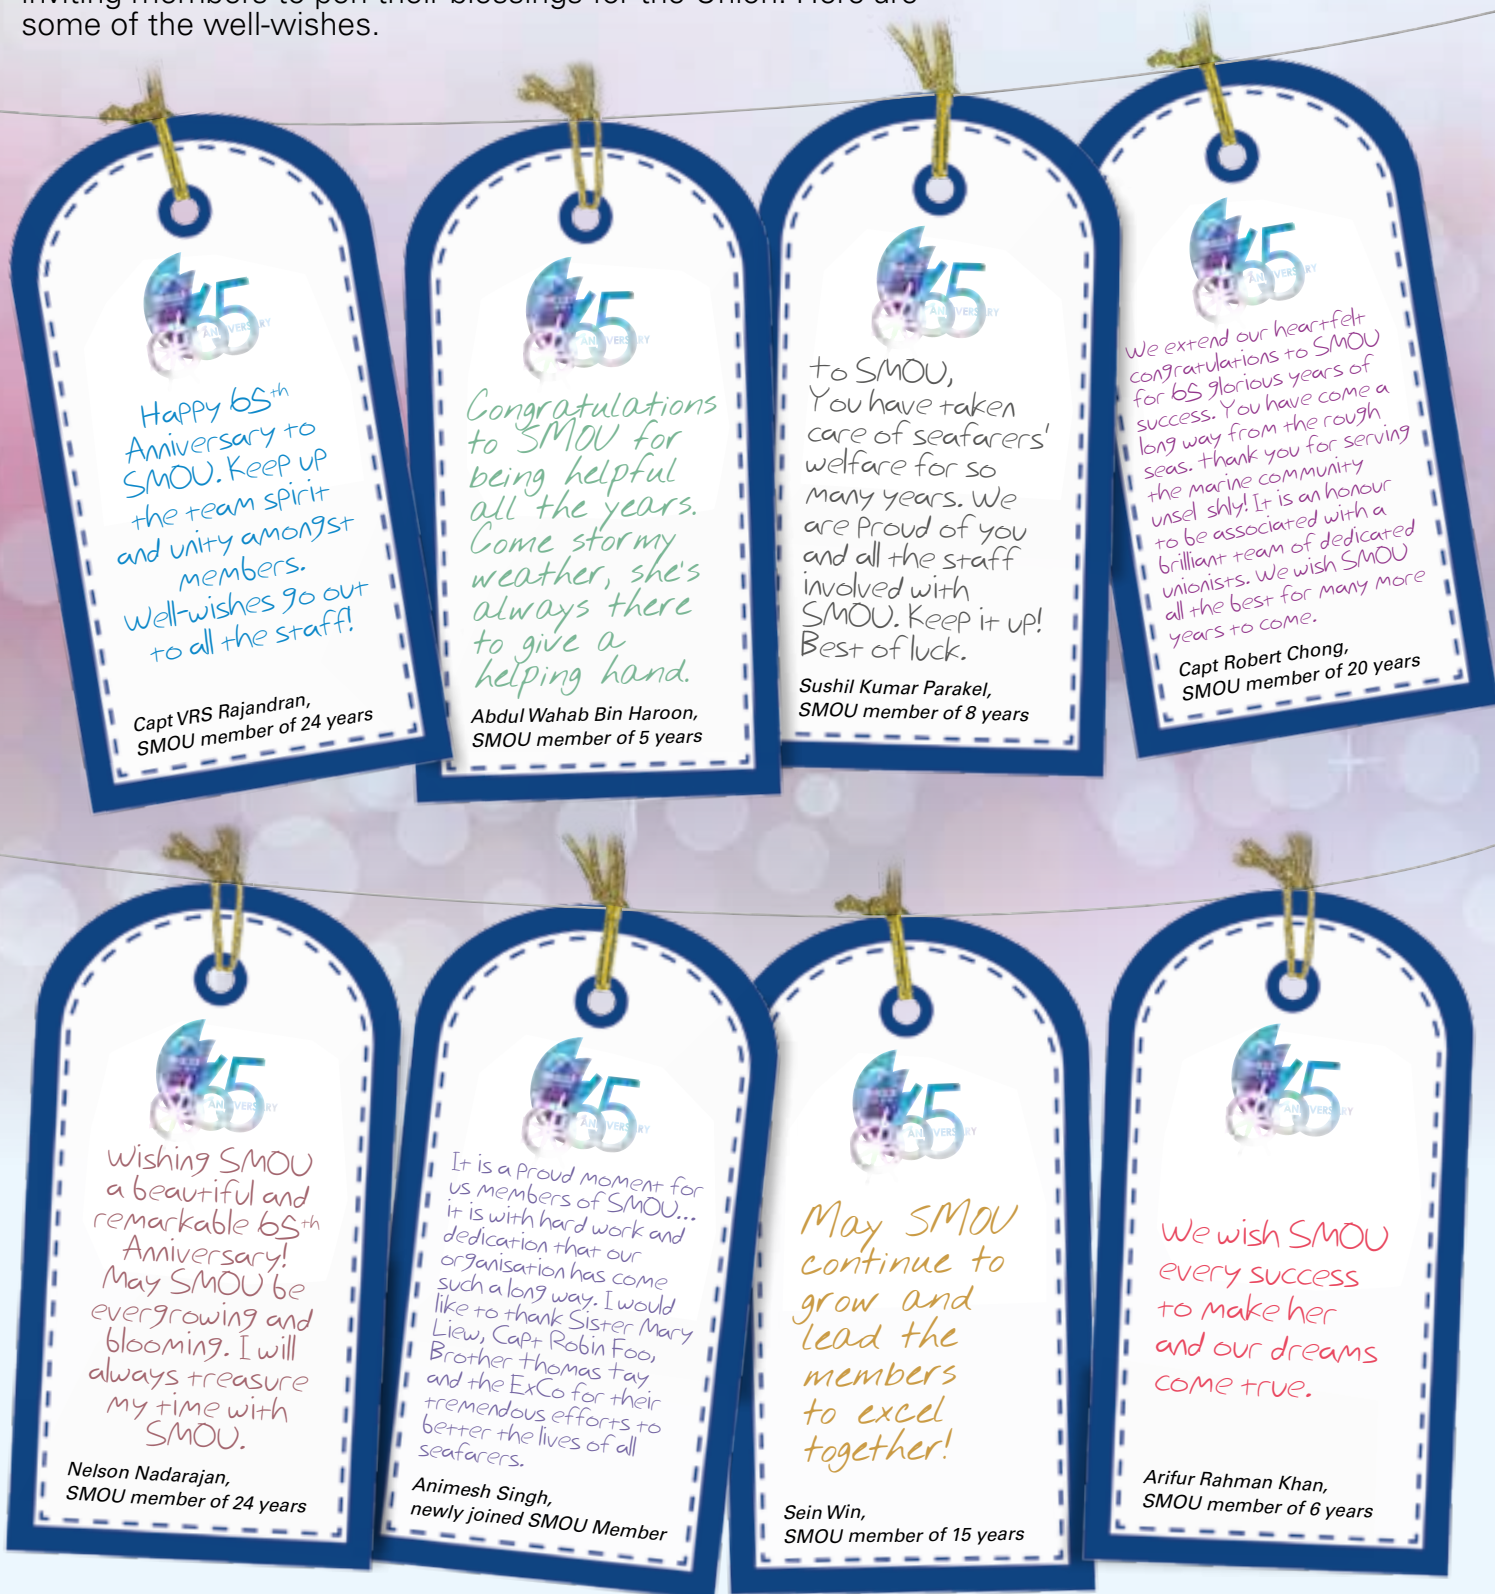 inviting members to pen their blessings for the Union. Here are
some of the well-wishes.
65
ANNIVERSARY
Happy 65th
Anniversary to
SMOU. Keep up
the team spirit
and unity amongst
members.
Well-wishes go out
to all the staff!
Capt VRS Rajandran,
SMOU member of 24 years
65
ANNIVERSARY
Congratulations
to SMOU for
being helpful
all the years.
Come stormy
weather, she's
always there
to give a
helping hand.
Abdul Wahab Bin Haroon,
SMOU member of 5 years
65
ANNIVERSARY
To SMOU,
You have taken
care of seafarers'
welfare for so
many years. We
are proud of you
and all the staff
involved with
SMOU. Keep it up!
Best of luck.
Sushil Kumar Parakel,
SMOU member of 8 years
65
ANNIVERSARY
We extend our heartfelt
congratulations to SMOU
for 65 glorious years of
success. You have come a
long way from the rough
seas. Thank you for serving
the marine community
unsel shly! It is an honour
to be associated with a
brilliant team of dedicated
unionists. We wish SMOU
all the best for many more
years to come.
Capt Robert Chong,
SMOU member of 20 years
65
ANNIVERSARY
Wishing SMOU
a beautiful and
remarkable 65th
Anniversary!
May SMOU be
evergrowing and
blooming. I will
always treasure
my time with
SMOU.
Nelson Nadarajan,
SMOU member of 24 years
65
ANNIVERSARY
It is a proud moment for
us members of SMOU...
it is with hard work and
dedication that our
organisation has come
such a long way. I would
like to thank Sister Mary
Liew, Capt Robin Foo,
Brother Thomas Tay
and the ExCo for their
tremendous efforts to
better the lives of all
seafarers.
Animesh Singh,
newly joined SMOU Member
65
ANNIVERSARY
May SMOU
continue to
grow and
lead the
members
to excel
together!
Sein Win,
SMOU member of 15 years
65
ANNIVERSARY
We wish SMOU
every success
to make her
and our dreams
come true.
Arifur Rahman Khan,
SMOU member of 6 years